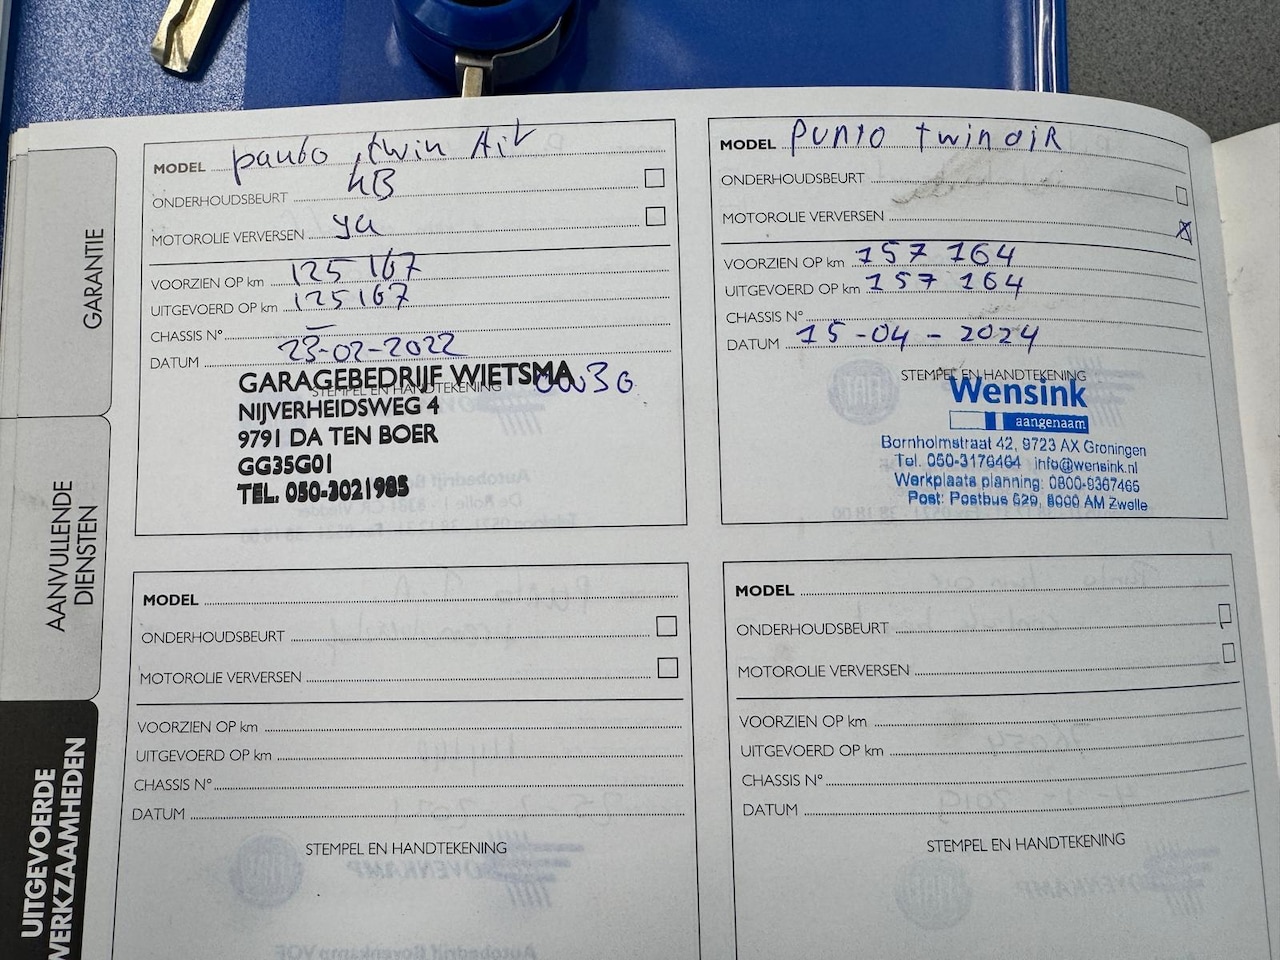 GARANTIE
AANVULLENDE
DIENSTEN
UITGEVOERDE
WERKZAAMHEDEN
MODEL punto twin Air
ONDERHOUDSBEURT KB
MOTOROLIE VERVERSEN ya
VOORZIEN OP km 125 167
UITGEVOERD OP km 125167
CHASSIS N°
DATUM 23-02-2022
STEMPEL EN HANDTEKENING
GARAGEBEDRIJF WIETSMA
NIJVERHEIDSWEG 4
9791 DA TEN BOER
GG35G01
TEL. 050-3021985
MODEL PUNTO twin aiR
ONDERHOUDSBEURT
MOTOROLIE VERVERSEN X
VOORZIEN OP km 157 164
UITGEVOERD OP km 157 164
CHASSIS N°
DATUM 15-04-2024
STEMPEL EN HANDTEKENING
Wensink
aangenaam
Bornholmstraat 42, 9723 AX Groningen
Tel. 050-3176464 info@wensink.nl
Werkplaats planning: 0800-9367465
Post: Postbus 629, 8000 AM Zwolle
MODEL
ONDERHOUDSBEURT
MOTOROLIE VERVERSEN
VOORZIEN OP km
UITGEVOERD OP km
CHASSIS N°
DATUM
STEMPEL EN HANDTEKENING
MODEL
ONDERHOUDSBEURT
MOTOROLIE VERVERSEN
VOORZIEN OP km
UITGEVOERD OP km
CHASSIS N°
DATUM
STEMPEL EN HANDTEKENING